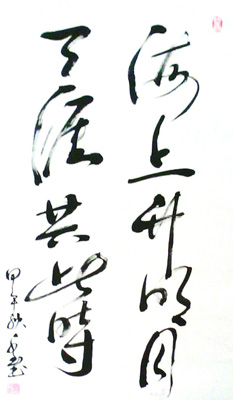 海上升明月
天涯共此時
甲午秋